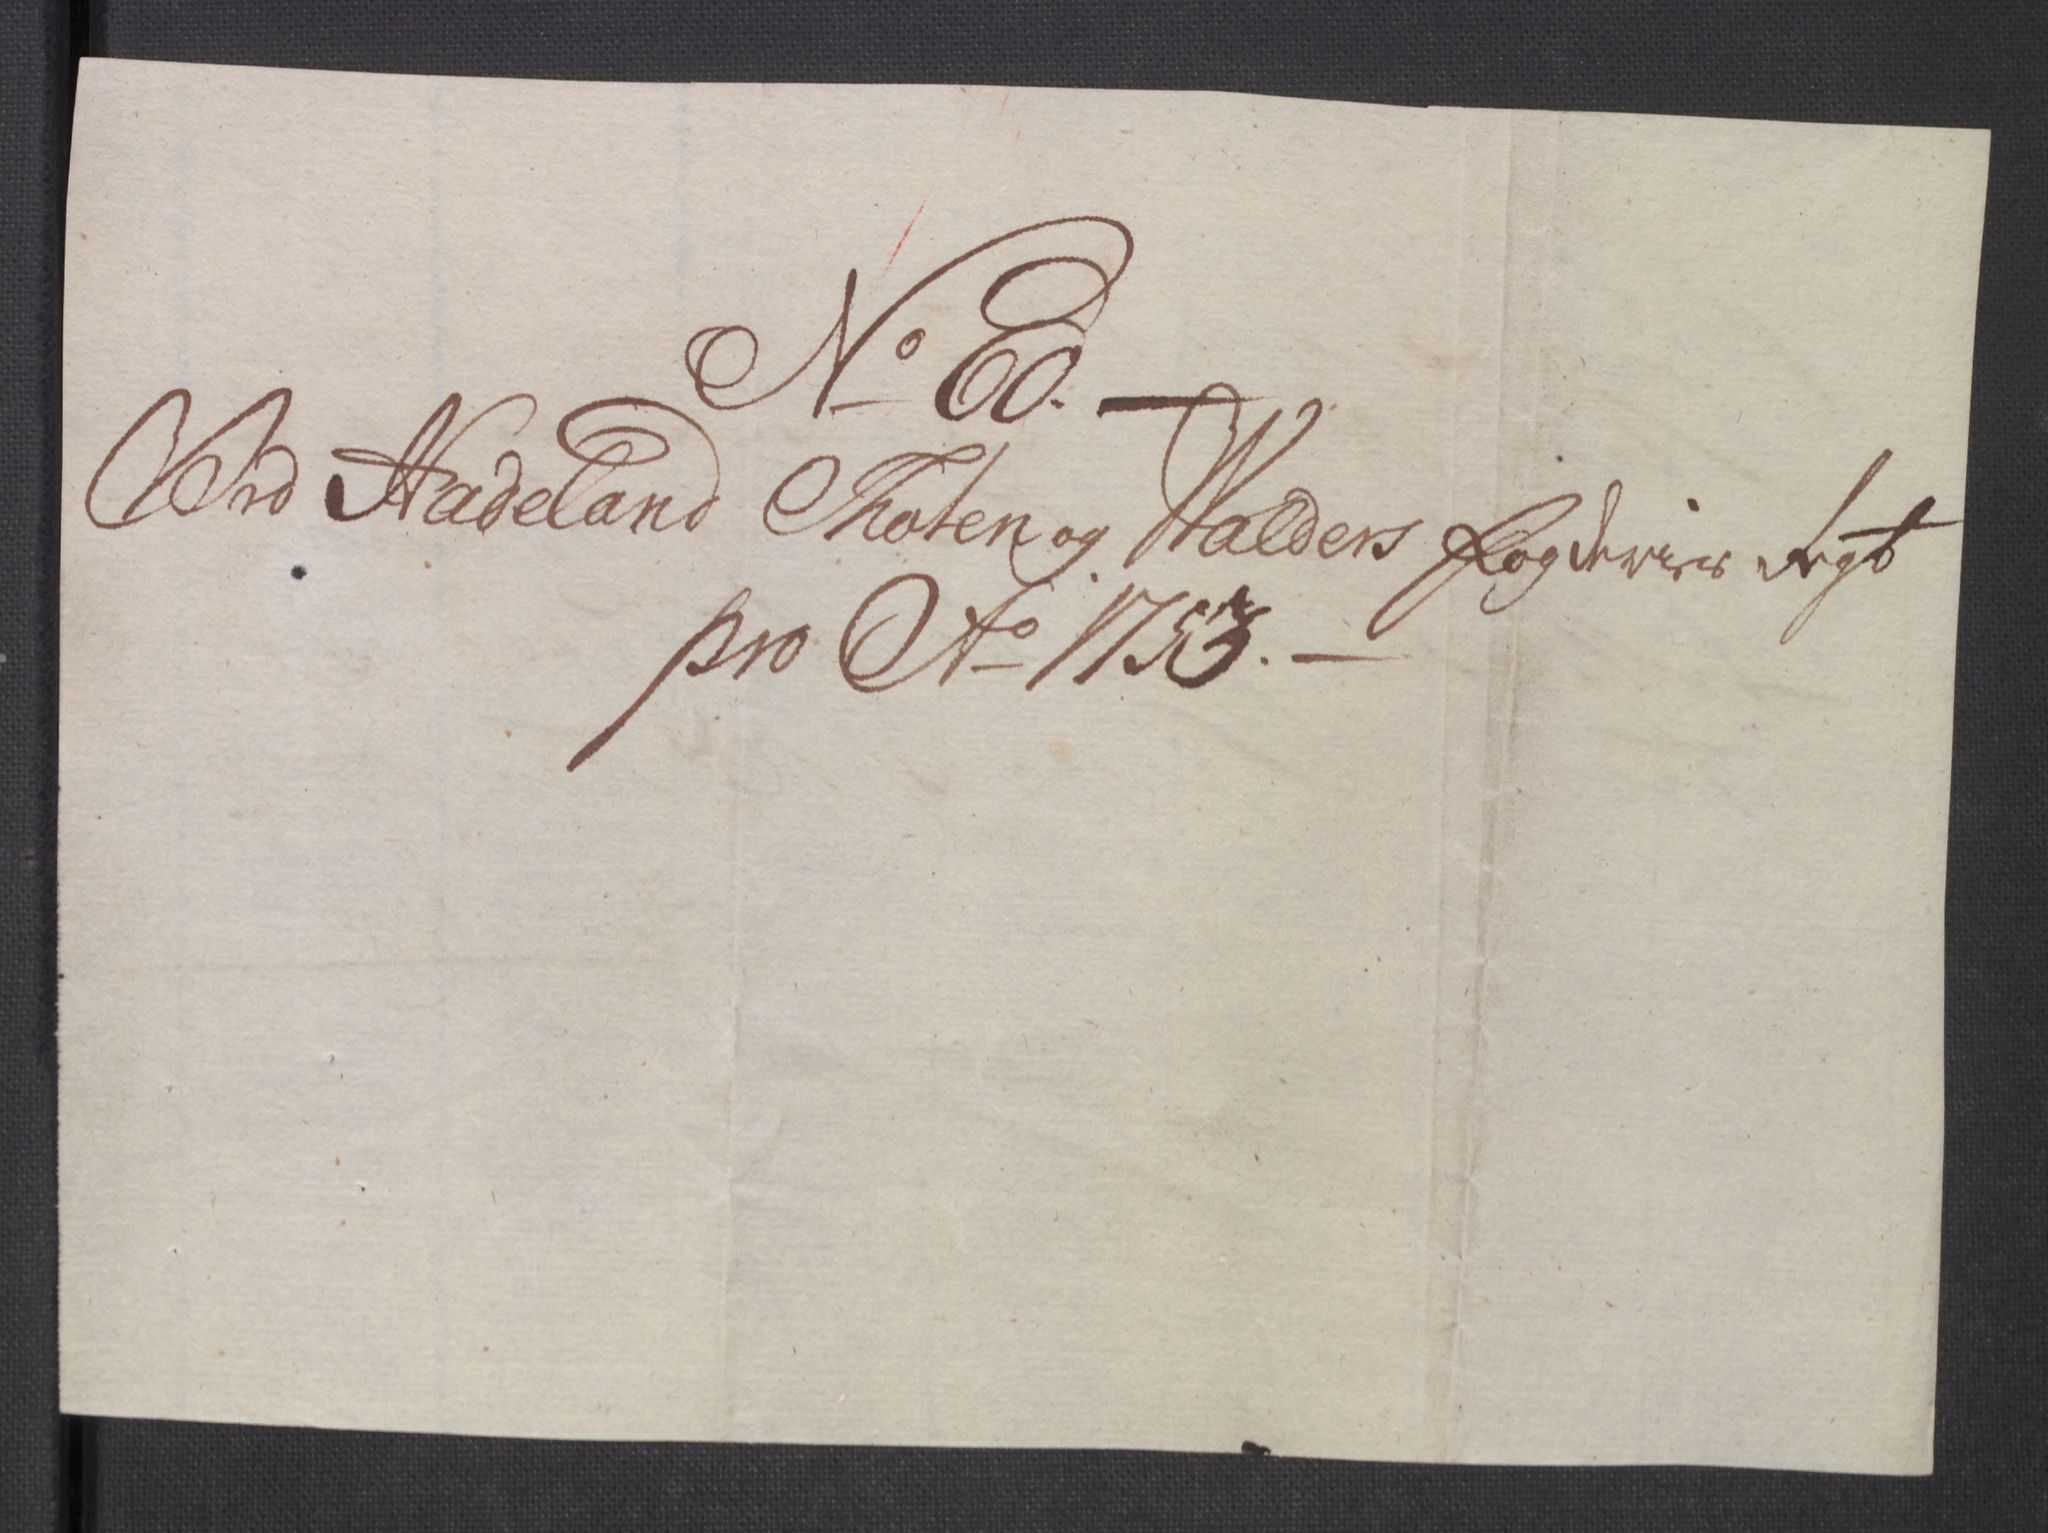 No
Ved Hadeland Thoten og Walders Fogderies Regt
pro Ao 1753.